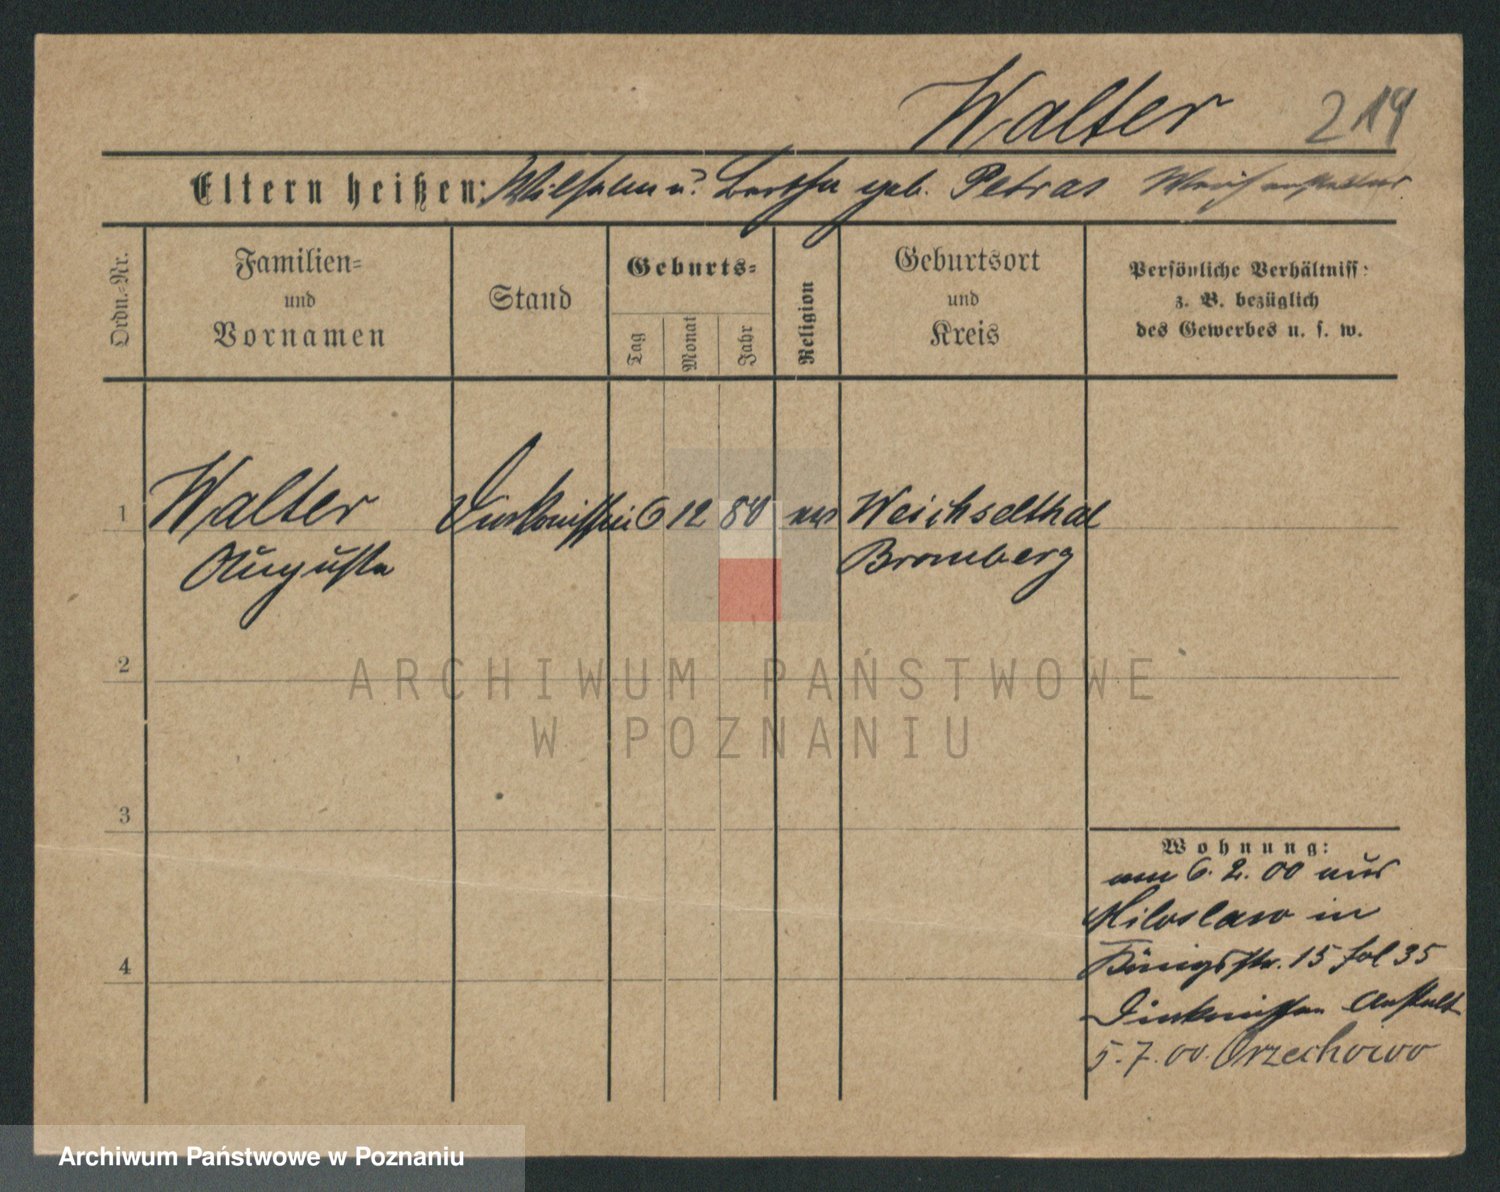 Walter 219
Eltern heißen: Wilhelm u. Bertha geb. Petras
Ordn.-Nr.
Familien-
und
Vornamen
Stand
Geburts-
Tag
Monat
Jahr
Religion
Geburtsort
und
Kreis
Persönliche Verhältniss:
z. B. bezüglich
des Gewerbes u. s. w.
1 Walter Diakonissin 6 12 80 Weichselthal
Auguste Bromberg
2
ARCHIWUM PAŃSTWOWE
W POZNANIU
3
Wohnung:
am 6. 2. 00 aus
Miloslaw in
Königsstr. 15 fol 35
4
Diakonissen Anstalt
5. 7. 00. Orzechowo
Archiwum Państwowe w Poznaniu